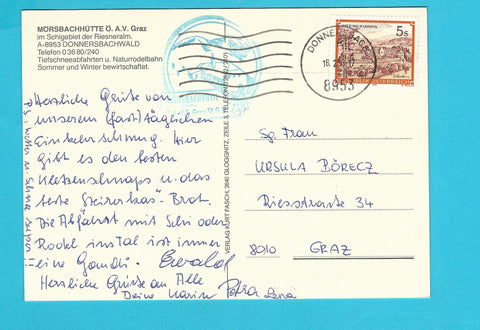 MÖRSBACHHÜTTE Ö. A. V. Graz
im Schigebiet der Riesneralm.
A-8953 DONNERSBACHWALD
Telefon 0 36 80/240
Tiefschneeabfahrten u. Naturrodelbahn
Sommer und Winter bewirtschaftet.
Herzliche Grüße von
unserem fast täglichen
Einkehrschwung. Hier
gibt es den besten
Kletzenschnaps u. das
beste Steirerkas-Brot.
Die Abfahrt mit Schi oder
Rodel ins Tal ist immer
eine Gaudi. Ewald
Herzliche Grüße an Alle
Deine Karin Petra
VERLAG KURT FASCH, 2640 GLOGGNITZ, ZEILE 3, TELEFON
DONNERSBACH
8953
5s
Sg. Frau
URSULA BÖRECZ
Riesstraße 34
8010 GRAZ